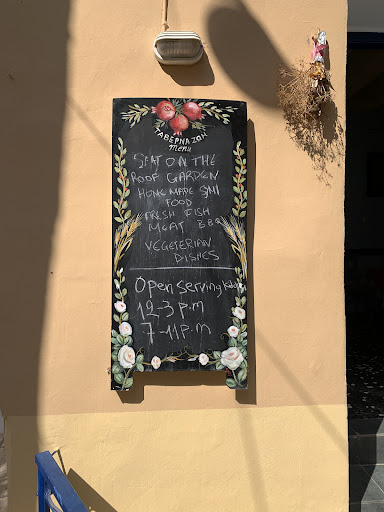 TABERNAZOH
menu
SEAT ON THE
ROOF GARDEN
HOME MADE SMI
FOOD
FRESH FISH
MEAT BBQ
VEGETERIAN
DISHES
Open serving
12-3 P.M
7-11 P.M